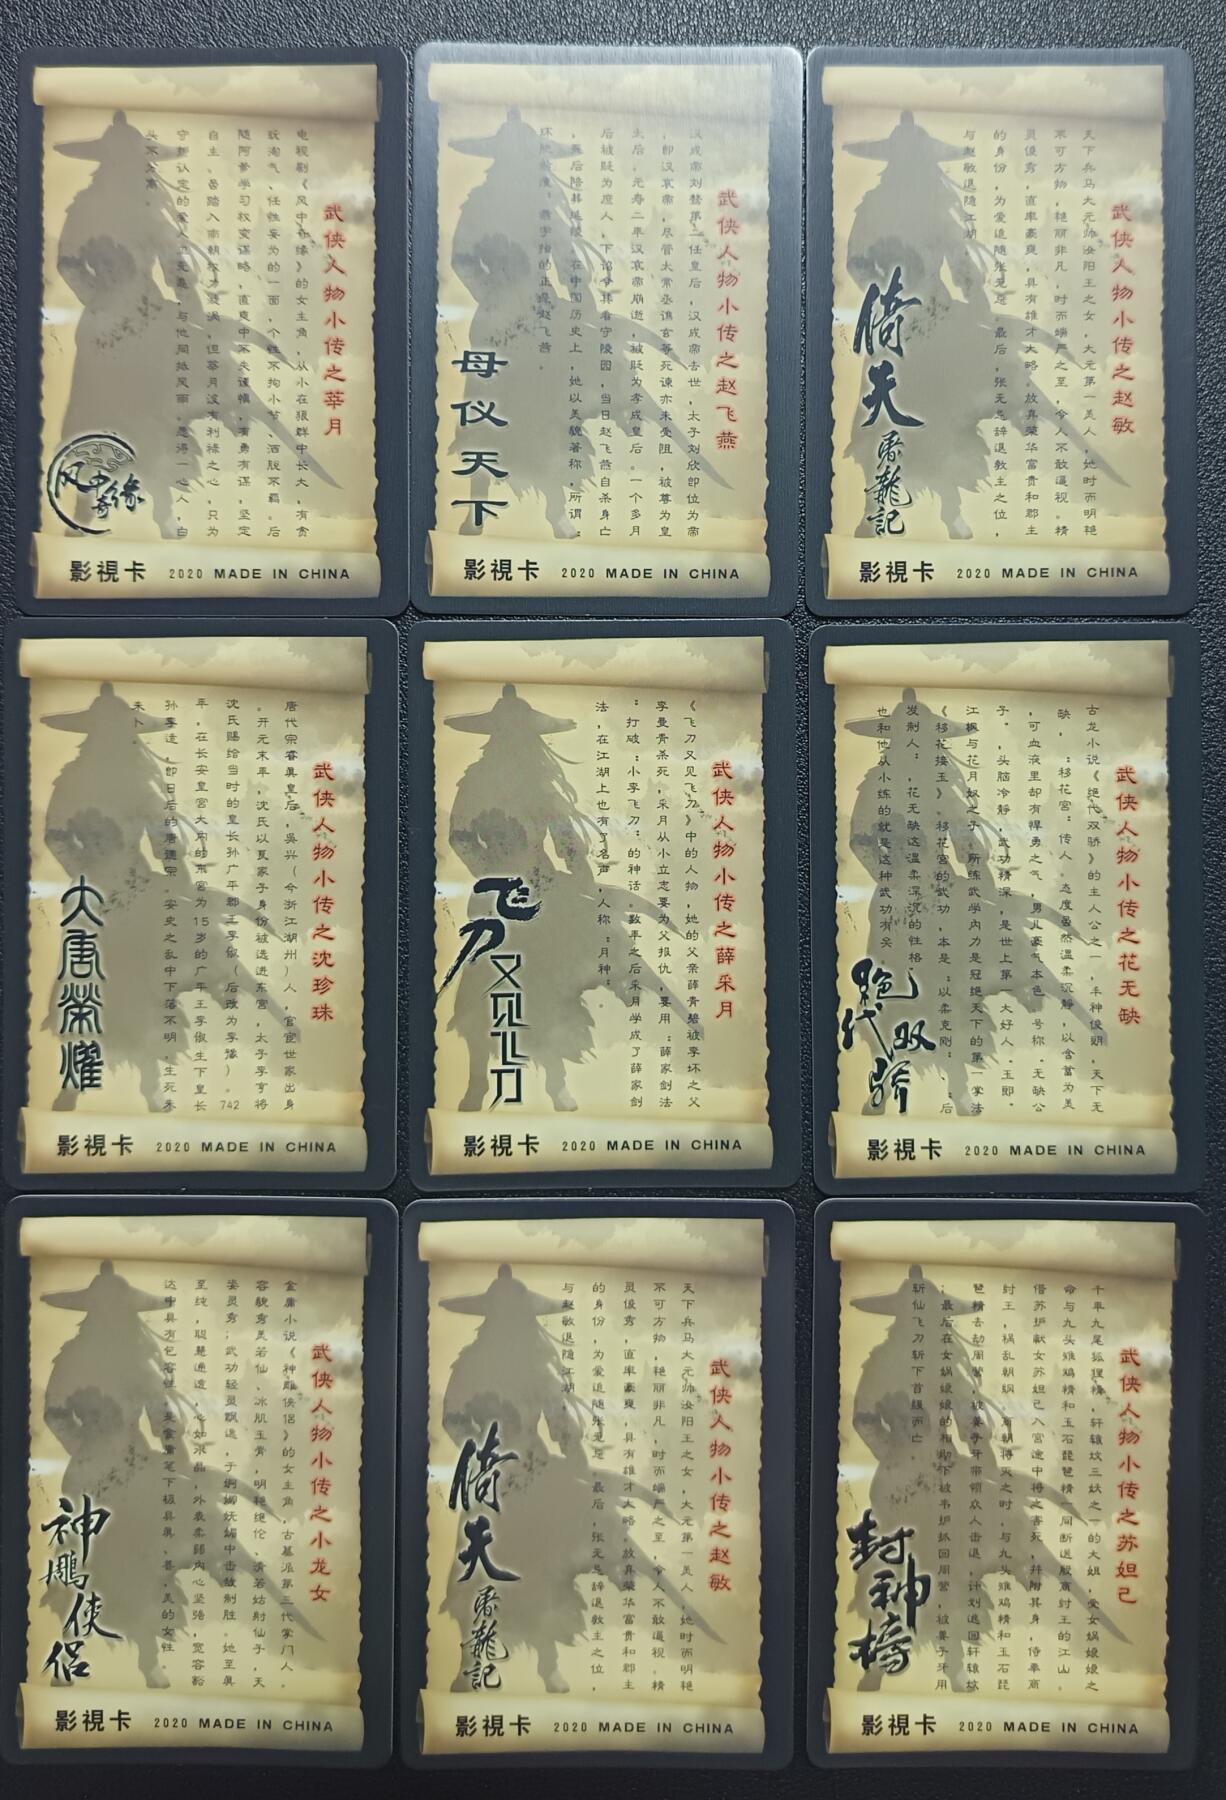 武侠人物小传之莘月
电视剧《风中奇缘》的女主角，从小在狼群中长大，有贪
玩淘气、任性妄为的一面，个性不拘小节、洒脱不羁。后
随阿爹学习权变谋略，直爽中不失谨慎，有勇有谋，坚定
自主。虽踏入南朝权力漩涡，但莘月没有利禄之心，只为
守护认定的爱人卫无忌，与他同抵风雨。愿得一心人，白
头不分离。
风中奇缘
影視卡 2020 MADE IN CHINA
武侠人物小传之赵飞燕
汉成帝刘骜第二任皇后，汉成帝去世，太子刘欣即位为帝
，即汉哀帝，尽管太常丞谯玄等死谏亦未受阻，被尊为皇
太后，元寿二年汉哀帝崩逝，被贬为孝成皇后。一个多月
后被贬为庶人，下诏令其看守陵园，当日赵飞燕自杀身亡
，死后陪葬延陵。在中国历史上，她以美貌著称，所谓：
环肥燕瘦：燕字指的正是赵飞燕。
母仪天下
影視卡 2020 MADE IN CHINA
武侠人物小传之赵敏
天下兵马大元帅汝阳王之女，大元第一美人，她时而明艳
不可方物，艳丽非凡，时而端严之至，令人不敢逼视。精
灵俊秀，直率豪爽，具有雄才大略。放弃荣华富贵和郡主
的身份，为爱追随张无忌。最后，张无忌辞退教主之位，
与赵敏退隐江湖。
倚天屠龍記
影視卡 2020 MADE IN CHINA
武侠人物小传之沈珍珠
唐代宗睿真皇后，吴兴（今浙江湖州）人，官宦世家出身
。开元末年，沈氏以良家子身份被选进东宫，太子李亨将
沈氏赐给当时的皇长孙广平郡王李俶（后改为李豫）。742
年，在长安皇宫大内的东宫为15岁的广平王李俶生下皇长
孙李适，即日后的唐德宗。安史之乱中下落不明，生死未
卜。
大唐榮耀
影視卡 2020 MADE IN CHINA
武侠人物小传之薛采月
《飞刀又见飞刀》中的人物，她的父亲薛青碧被李坏之父
李曼青杀死，采月从小立志要为父报仇，要用：薛家剑法
：打破：小李飞刀：的神话。数年之后采月学成了薛家剑
法，在江湖上也有了名声，人称：月神：。
飞刀又见飞刀
影視卡 2020 MADE IN CHINA
武侠人物小传之花无缺
古龙小说《绝代双骄》的主人公之一，丰神俊朗，天下无
缺，：移花宫：传人。态度虽然温柔沉静，以含蓄为美
，可血液里却有悍勇之气，男儿豪气本色。号称·无缺公
子·，头脑冷静，武功精深，是世上第一大好人·玉郎·
江枫与花月奴之子。所练武学内力是冠绝天下的第一掌法
《移花接玉》。移花宫的武功，本是：以柔克刚：、：后
发制人：，花无缺这温柔深沉的性格，
也和他从小练的就是这种武功有关。
絕代双骄
影視卡 2020 MADE IN CHINA
武侠人物小传之小龙女
金庸小说《神雕侠侣》的女主角，古墓派第三代掌门人。
容貌秀美若仙、冰肌玉骨，明艳绝伦、清若姑射仙子，天
姿灵秀；武功轻灵飘逸，于婀娜妩媚中击敌制胜。她至真
至纯，聪慧通透，心如水晶，外表柔弱内心坚强，宽容豁
达中具有包容性，是金庸笔下极具真、善、美的女性。
神雕侠侣
影視卡 2020 MADE IN CHINA
武侠人物小传之赵敏
天下兵马大元帅汝阳王之女，大元第一美人，她时而明艳
不可方物，艳丽非凡，时而端严之至，令人不敢逼视。精
灵俊秀，直率豪爽，具有雄才大略。放弃荣华富贵和郡主
的身份，为爱追随张无忌。最后，张无忌辞退教主之位，
与赵敏退隐江湖。
倚天屠龍記
影視卡 2020 MADE IN CHINA
武侠人物小传之苏妲己
千年九尾狐狸精，轩辕坟三妖之一的大姐，受女娲娘娘之
命与九头雉鸡精和玉石琵琶精一同断送殷商封王的江山。
借苏护献女苏妲己入宫途中将之害死，并附其身，侍奉商
封王，祸乱朝纲。商朝将灭之时，与九头雉鸡精和玉石琵
琶精去劫周营，被姜子牙带领众人击退，计划逃回轩辕坟
；最后在女娲娘娘的相助下被韦护抓回周营，被姜子牙用
斩仙飞刀斩下首级而亡。
封神榜
影視卡 2020 MADE IN CHINA